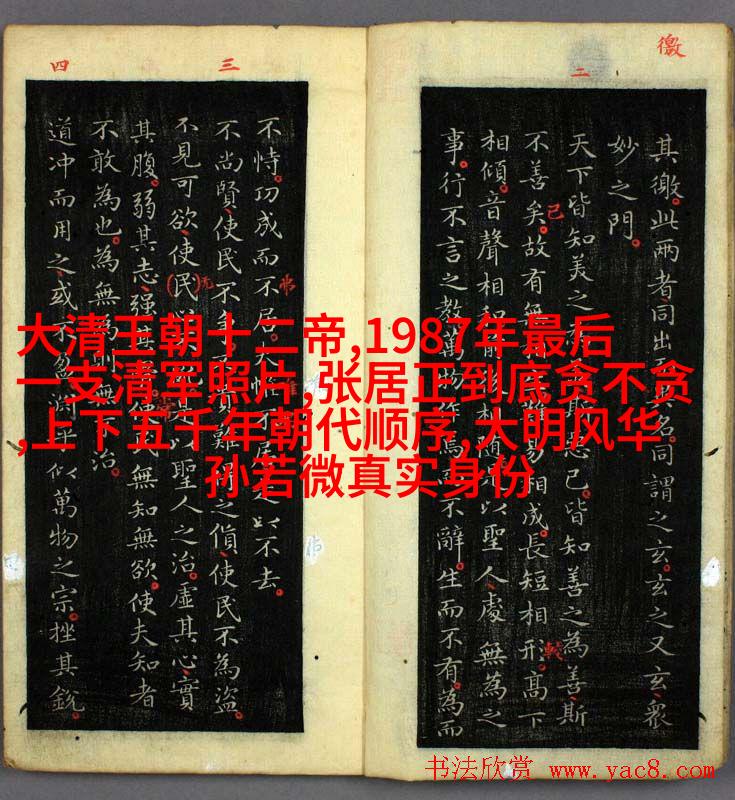 徼
二
其徼此兩者同出名同謂之玄玄之又玄衆
妙之門
天下皆知美之斯惡已皆知善之為善斯
己
不善矣故有無難易相成長短相形高下
相傾音聲相和前後相隨是以聖人處無為之
事行不言之教萬物作不辭生而不有為而
三
不恃功成而不居夫惟不居是以不去
弗
不尚賢使民不爭難得之貨使民不為盜
无
不見可欲使民是以聖人之治虛其心實
其腹弱其志強其使民無知無欲使夫知者
不敢為也為無為則無治
四
道冲而用之或不盈淵乎似萬物之宗挫其銳
大清王朝十二帝,1987年最后
一支清军照片,张居正到底贪不贪
,上下五千年朝代顺序,大明风华
孙若微真实身份
书法欣赏 www.yac8.com